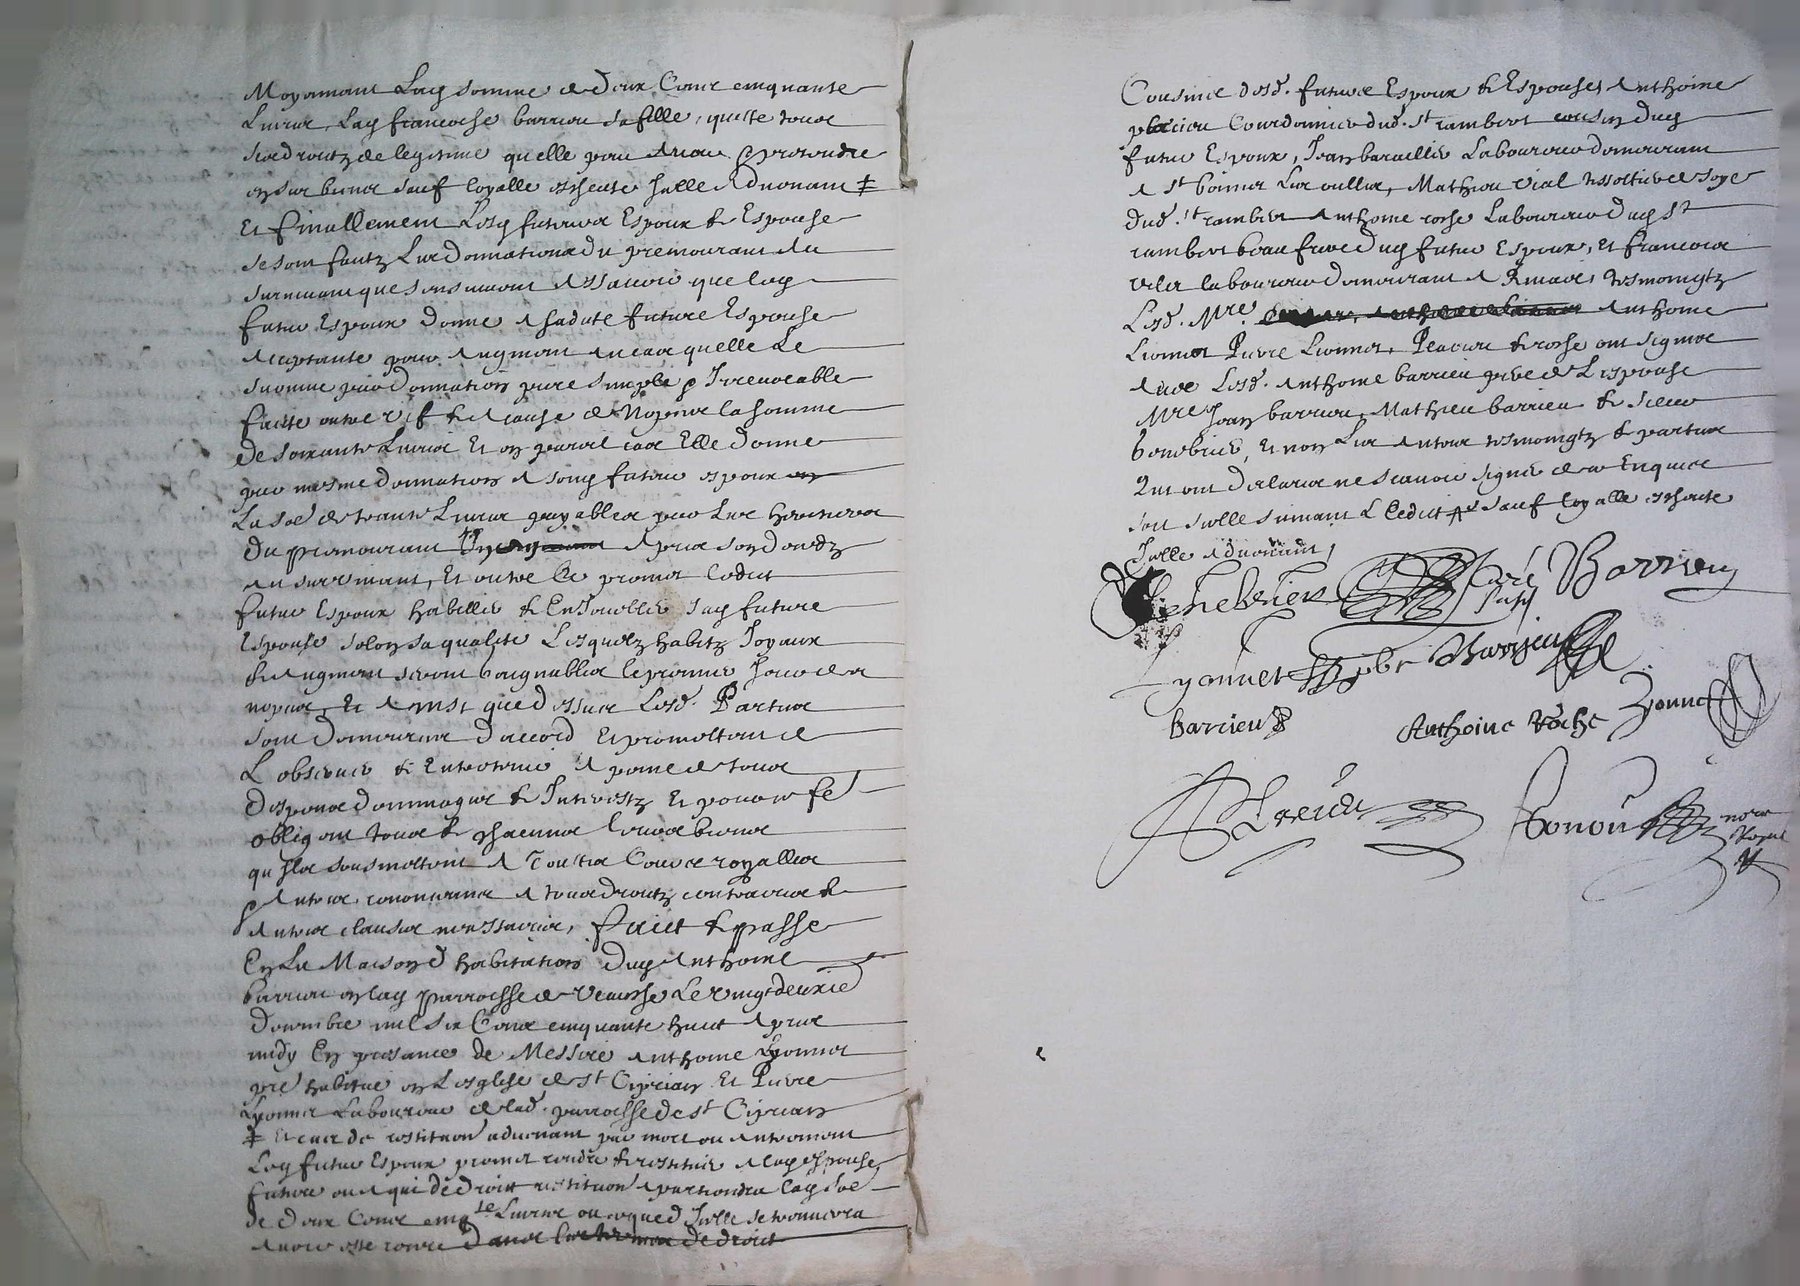 Moyenant Lad somme de deux Cens cinquante
Livres, Lad francoise barrieu sa fille, quitte tous
ses droitz de legitime quelle peu avoir & pretendre
en ses biens sauf loyalle escheute Jcelle advenant ‡
Et finallement Lesd futures Espoux & Espouse
se sont faitz Les donnations du premourant au
survivant que sensuivent Assavoir que led
futur Espoux donne a sadite future Espouse
acceptante pour augment en cas quelle Le
survive par donnation pure simple & Jrrevocable
faicte entre vif & a cause de Nopces la somme
de soixante Livres Et en pareil cas Elle donne
par mesme donnation a sond futur espoux
La sōe de trante Livres payables par Les heritiers
du premourant apres son deceds
au survivant, Et outre Ce promet ledict
futur Espoux habiller & EnJoueller lad future
Espouse selon sa qualite Lesquelz habitz Joyaux
& augment seront gaignables le premier Jour des
nopces, Et Ainsi que dessus Lesd. Parties
sont demeurees daccord Et promettant de
L observer & Entretenir a peine de tous
despens dommages & Jnterestz Et pour ce fē
obligent tous & chacuns leurs biens
quilz soubsmettent A Toutes Cours royalles
& autres renoncant a tous droitz contraires &
autres clauses necessaires, faict & passe
En La Maison d habitation dud Anthoine
barrieu en lad parroisse de Veauche Le vingt deuxie
decembre mil six Cens cinquante huict apres
midy En presance de Messire Anthoine Lyonnet
pre habitue en Lesglise de St Ciprian Et Pierre
Lyonnet Laboureur de lad. parroisse de St Ciprian
‡ Et cas de restitution advenant par mort ou autrement
Led futur Espoux promet rendre & restituer a lad espouse
future ou a qui de droict restitution apartiendra lad sōe
de deux Cens cinqte Livres ou ce que d Jcelle se trouvera
avoir este receu
Cousine desd. futures Espoux & Espouse, Anthoine
placieu Courdonnier dud. St rambert cousin dud
futur Espoux, Jean baraillier Laboureur demeurant
a St bonnet Les oulles, Mathieu vial tissotier de soye
dud. St rambert Anthoine roche Laboureur dud St
rambert beau frere dud futur Espoux, Et francois
laboureur demeurant a Rivas, tesmoingtz
Lesd. Mre Anthoine
Lionnet Pierre Lionnet, Placieu & roche ont signe
avec Lesd. Anthoine barrieu pere de Lespouse
Mre Jean barrieu, Mathieu barrieu & sieur
Et non Les autres tesmoingtz & parties
Qui ont declare ne scavoir signer de ce Enquis
soit scelle suivant L Edict & sauf loyalle escheute
Jcelle advenant,
Barrieu
Lyonnet Barrieu
barrieu Anthoine Roche Lyonnet
Placieu
nore Royal